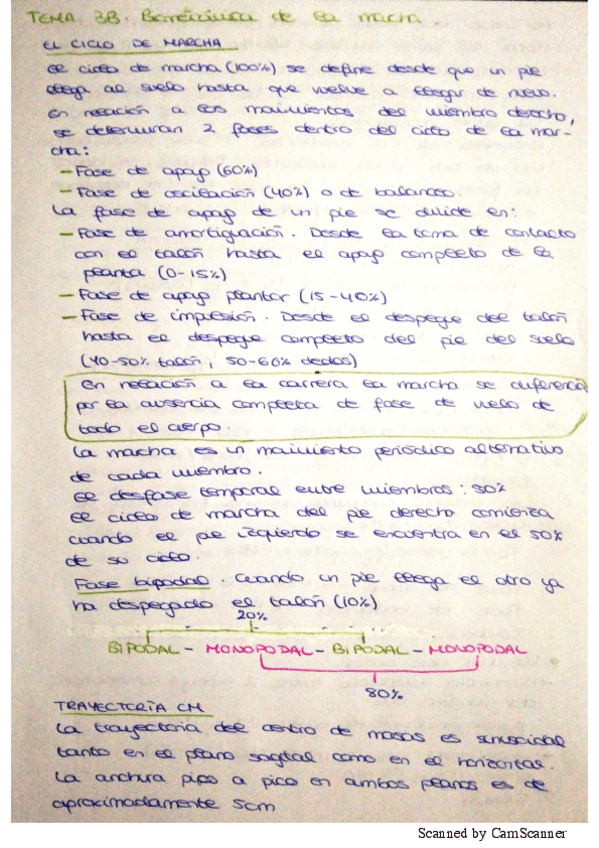 TEMA 3B. Biomecánica de la marcha
EL CICLO DE MARCHA
El ciclo de marcha (100%) se define desde que un pie
llega al suelo hasta que vuelve a llegar de nuevo.
En relación a los movimientos del miembro derecho,
se determinan 2 fases dentro del ciclo de la mar-
cha:
- Fase de apoyo (60%)
- Fase de oscilación (40%) o de balanceo.
La fase de apoyo de un pie se divide en:
- Fase de amortiguación. Desde la toma de contacto
con el talón hasta el apoyo completo de la
planta (0-15%)
- Fase de apoyo plantar (15-40%)
- Fase de impulsión. Desde el despegue del talón
hasta el despegue completo del pie del suelo
(40-50% talón, 50-60% dedos)
En relación a la carrera la marcha se diferencia
por la ausencia completa de fase de vuelo de
todo el cuerpo.
La marcha es un movimiento periódico alternativo
de cada miembro.
El desfase temporal entre miembros: 50%
El ciclo de marcha del pie derecho comienza
cuando el pie izquierdo se encuentra en el 50%
de su ciclo.
Fase bipodal. Cuando un pie llega el otro ya
ha despegado el talón (10%)
20%
BIPODAL - MONOPODAL - BIPODAL - MONOPODAL
80%
TRAYECTORIA CM
La trayectoria del centro de masas es sinusoidal
tanto en el plano sagital como en el horizontal.
La anchura pico a pico en ambos planos es de
aproximadamente 5cm
Scanned by CamScanner